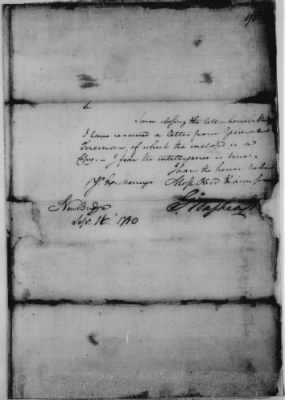 Sir
Since closing the letter herewith
I have received a letter from General
of which the enclosed is a
Copy. I fear the intelligence is true.
I have the honor to be
Yr Excellency's Most Obed
New Bridge
Sept. 16th 1780